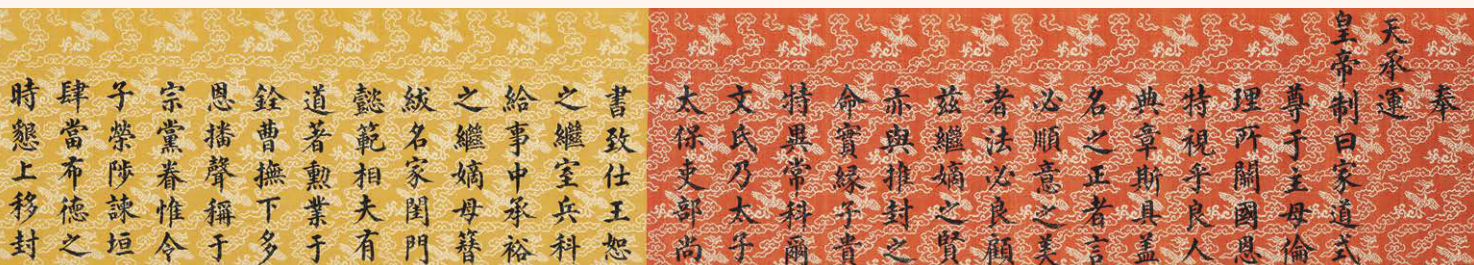 奉
天承運
皇帝制曰家道式
尊于主母倫
理所關國恩
特視乎良人
典章斯具蓋
名之正者言
必順意之美
者法必良顧
茲繼嫡之賢
亦與推封之
命實緣子貴
特異常科爾
文氏乃太子
太保吏部尚
書致仕王恕
之繼室兵科
給事中承裕
之繼嫡母簪
紱名家閨門
懿範相夫有
道著勳業于
銓曹撫下多
恩播聲稱于
宗黨眷惟令
子榮陟諫垣
肆當布德之
時懇上移封